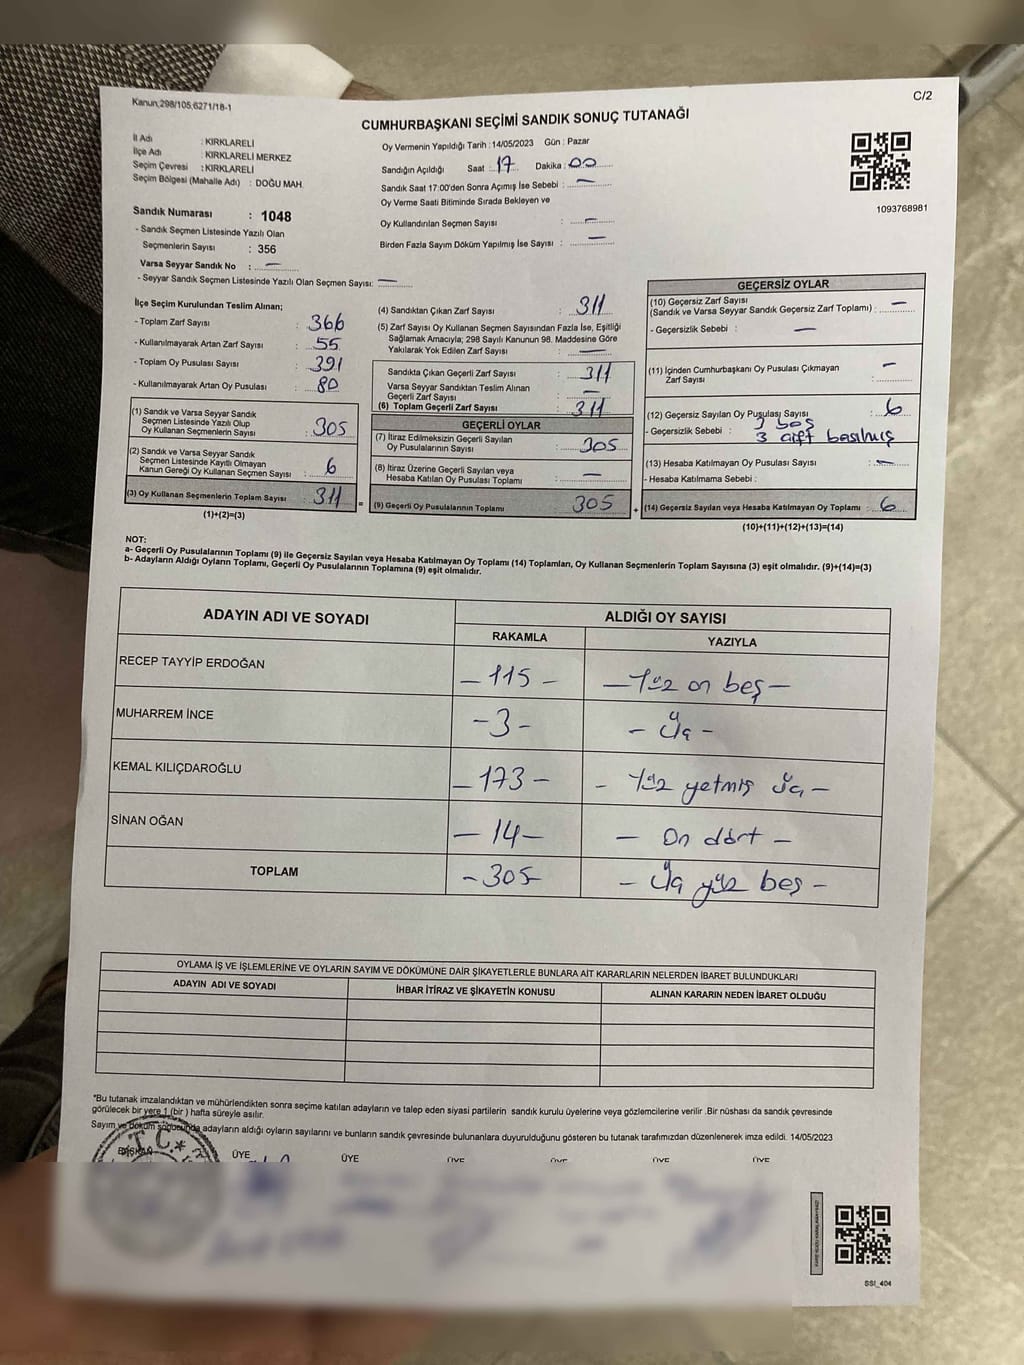 Kanun;298/105;6271/18-1
C/2
CUMHURBAŞKANI SEÇİMİ SANDIK SONUÇ TUTANAĞI
İl Adı : KIRKLARELİ
İlçe Adı : KIRKLARELİ MERKEZ
Seçim Çevresi : KIRKLARELİ
Seçim Bölgesi (Mahalle Adı) : DOĞU MAH.
Sandık Numarası : 1048
- Sandık Seçmen Listesinde Yazılı Olan
Seçmenlerin Sayısı : 356
Varsa Seyyar Sandık No : —
- Seyyar Sandık Seçmen Listesinde Yazılı Olan Seçmen Sayısı: —
Oy Vermenin Yapıldığı Tarih : 14/05/2023 Gün : Pazar
Sandığın Açıldığı Saat : 17 Dakika : 00
Sandık Saat 17:00'den Sonra Açımış İse Sebebi : —
Oy Verme Saati Bitiminde Sırada Bekleyen ve
Oy Kullandırılan Seçmen Sayısı : —
Birden Fazla Sayım Döküm Yapılmış İse Sayısı : —
1093768981
İlçe Seçim Kurulundan Teslim Alınan;
- Toplam Zarf Sayısı : 366
- Kullanılmayarak Artan Zarf Sayısı : 55
- Toplam Oy Pusulası Sayısı : 391
- Kullanılmayarak Artan Oy Pusulası : 80
(1) Sandık ve Varsa Seyyar Sandık
Seçmen Listesinde Yazılı Olup
Oy Kullanan Seçmenlerin Sayısı : 305
(2) Sandık ve Varsa Seyyar Sandık
Seçmen Listesinde Kayıtlı Olmayan
Kanun Gereği Oy Kullanan Seçmen Sayısı : 6
(3) Oy Kullanan Seçmenlerin Toplam Sayısı : 311 =
(1)+(2)=(3)
(4) Sandıktan Çıkan Zarf Sayısı : 311
(5) Zarf Sayısı Oy Kullanan Seçmen Sayısından Fazla İse, Eşitliği
Sağlamak Amacıyla; 298 Sayılı Kanunun 98. Maddesine Göre
Yakılarak Yok Edilen Zarf Sayısı : —
Sandıkta Çıkan Geçerli Zarf Sayısı : 311
Varsa Seyyar Sandıktan Teslim Alınan
Geçerli Zarf Sayısı : —
(6) Toplam Geçerli Zarf Sayısı : 311
GEÇERLİ OYLAR
(7) İtiraz Edilmeksizin Geçerli Sayılan
Oy Pusulalarının Sayısı : 305
(8) İtiraz Üzerine Geçerli Sayılan veya
Hesaba Katılan Oy Pusulası Toplamı : —
(9) Geçerli Oy Pusulalarının Toplamı : 305 +
GEÇERSİZ OYLAR
(10) Geçersiz Zarf Sayısı
(Sandık ve Varsa Seyyar Sandık Geçersiz Zarf Toplamı) : —
- Geçersizlik Sebebi : —
(11) İçinden Cumhurbaşkanı Oy Pusulası Çıkmayan
Zarf Sayısı : —
(12) Geçersiz Sayılan Oy Pusulası Sayısı : 6
- Geçersizlik Sebebi : 3 boş
3 çift basılmış
(13) Hesaba Katılmayan Oy Pusulası Sayısı : —
- Hesaba Katılmama Sebebi :
(14) Geçersiz Sayılan veya Hesaba Katılmayan Oy Toplamı : 6
(10)+(11)+(12)+(13)=(14)
NOT:
a- Geçerli Oy Pusulalarının Toplamı (9) ile Geçersiz Sayılan veya Hesaba Katılmayan Oy Toplamı (14) Toplamları, Oy Kullanan Seçmenlerin Toplam Sayısına (3) eşit olmalıdır. (9)+(14)=(3)
b- Adayların Aldığı Oyların Toplamı, Geçerli Oy Pusulalarının Toplamına (9) eşit olmalıdır.
ADAYIN ADI VE SOYADI ALDIĞI OY SAYISI
RAKAMLA YAZIYLA
RECEP TAYYİP ERDOĞAN – 115 – – Yüz on beş –
MUHARREM İNCE – 3 – – Üç –
KEMAL KILIÇDAROĞLU – 173 – – Yüz yetmiş üç –
SİNAN OĞAN – 14 – – On dört –
TOPLAM – 305 – – Üç yüz beş –
OYLAMA İŞ VE İŞLEMLERİNE VE OYLARIN SAYIM VE DÖKÜMÜNE DAİR ŞİKAYETLERLE BUNLARA AİT KARARLARIN NELERDEN İBARET BULUNDUKLARI
ADAYIN ADI VE SOYADI İHBAR İTİRAZ VE ŞİKAYETİN KONUSU ALINAN KARARIN NEDEN İBARET OLDUĞU
*Bu tutanak imzalandıktan ve mühürlendikten sonra seçime katılan adayların ve talep eden siyasi partilerin sandık kurulu üyelerine veya gözlemcilerine verilir .Bir nüshası da sandık çevresinde
görülecek bir yere 1 (bir ) hafta süreyle asılır.
Sayım ve döküm sonucunda adayların aldığı oyların sayılarını ve bunların sandık çevresinde bulunanlara duyurulduğunu gösteren bu tutanak tarafımızdan düzenlenerek imza edildi. 14/05/2023
BAŞKAN ÜYE ÜYE ÜYE ÜYE ÜYE ÜYE
T.C.
SSI_404